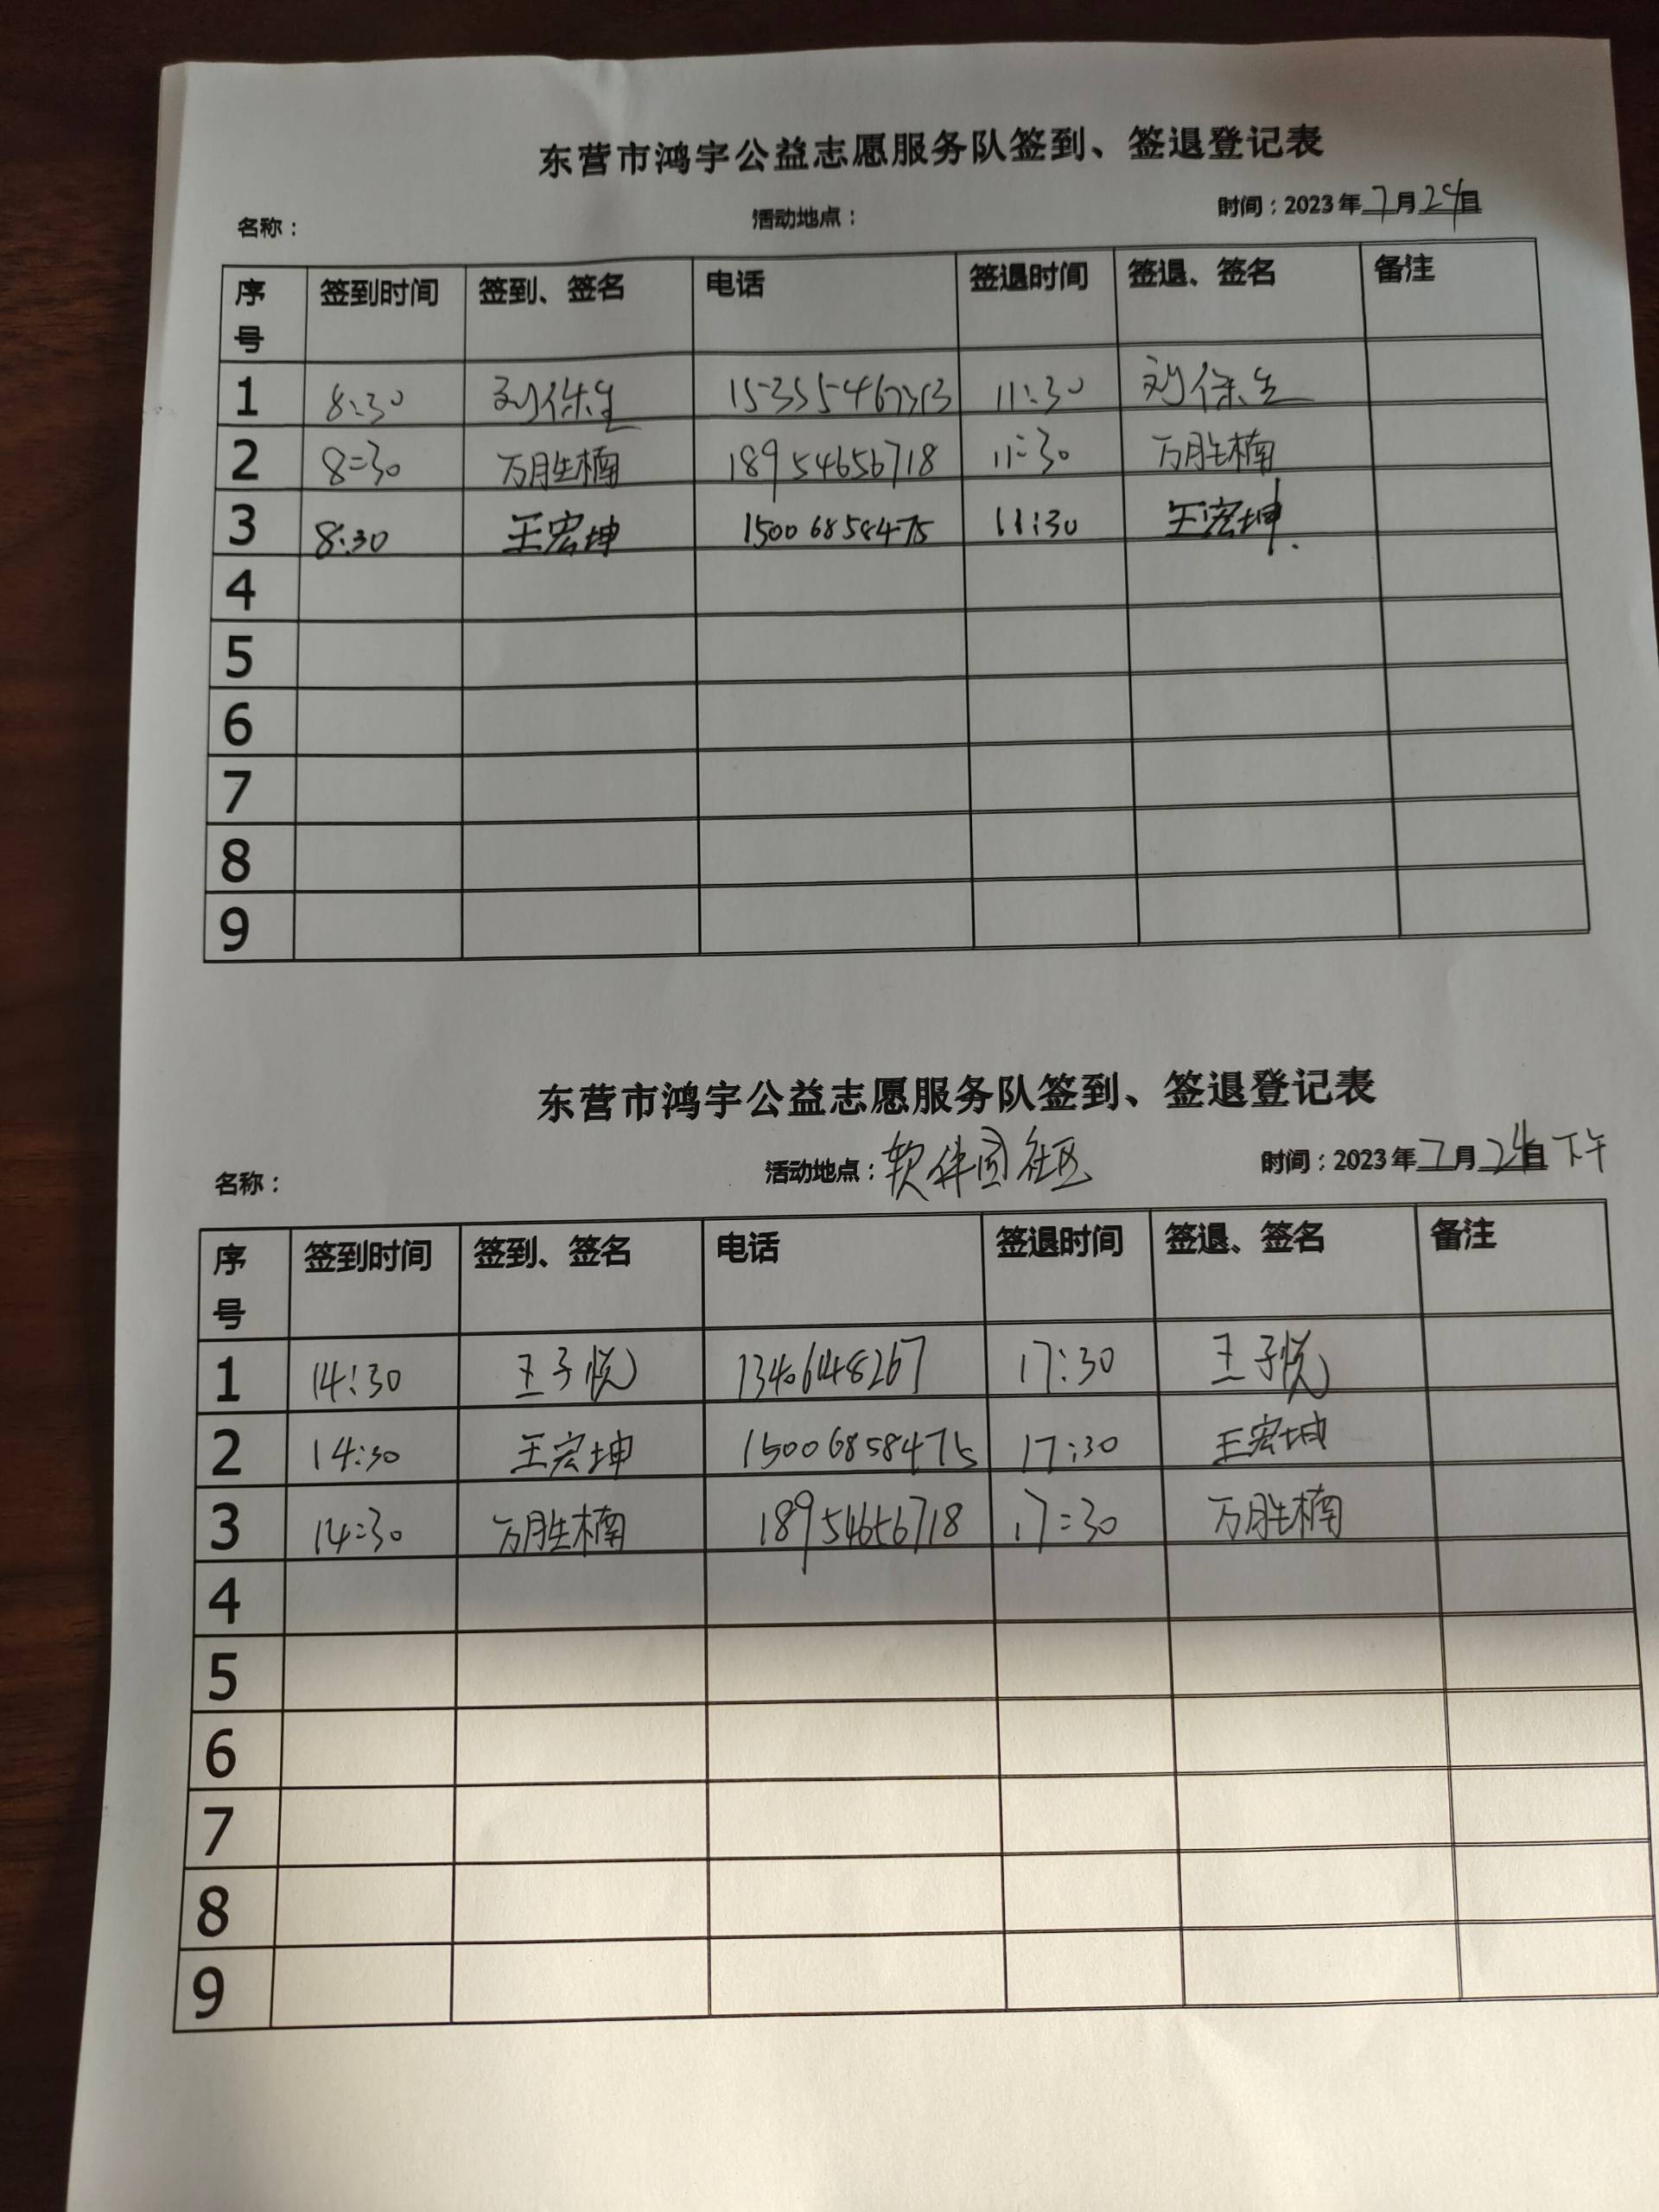 东营市鸿宇公益志愿服务队签到、签退登记表
名称： 活动地点： 时间：2023年7月24日
序号 签到时间 签到、签名 电话 签退时间 签退、签名 备注
1 8:30 刘保生 11:30 刘保生
2 8:30 万胜楠 18954656718 11:30 万胜楠
3 8:30 王宏坤 15006858475 11:30 王宏坤
4
5
6
7
8
9
东营市鸿宇公益志愿服务队签到、签退登记表
名称： 活动地点：软件园社区 时间：2023年7月24日下午
序号 签到时间 签到、签名 电话 签退时间 签退、签名 备注
1 14:30 王子悦 17:30 王子悦
2 14:30 王宏坤 15006858475 17:30 王宏坤
3 14:30 万胜楠 18954656718 17:30 万胜楠
4
5
6
7
8
9